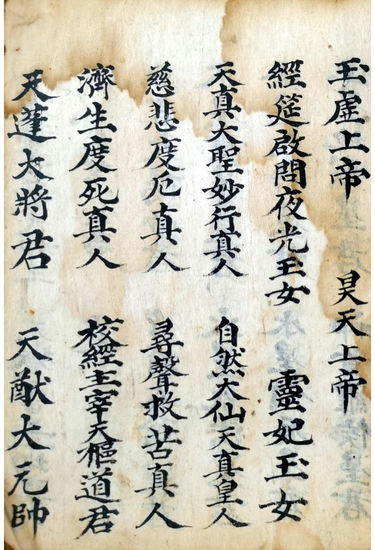 玉虛上帝 昊天上帝
經筵啟問夜光玉女 靈妃玉女
天真大聖妙行真人 自然大仙天真皇人
慈悲度厄真人 尋聲救苦真人
濟生度死真人 校經主宰天樞道君
天蓬大將君 天猷大元帥